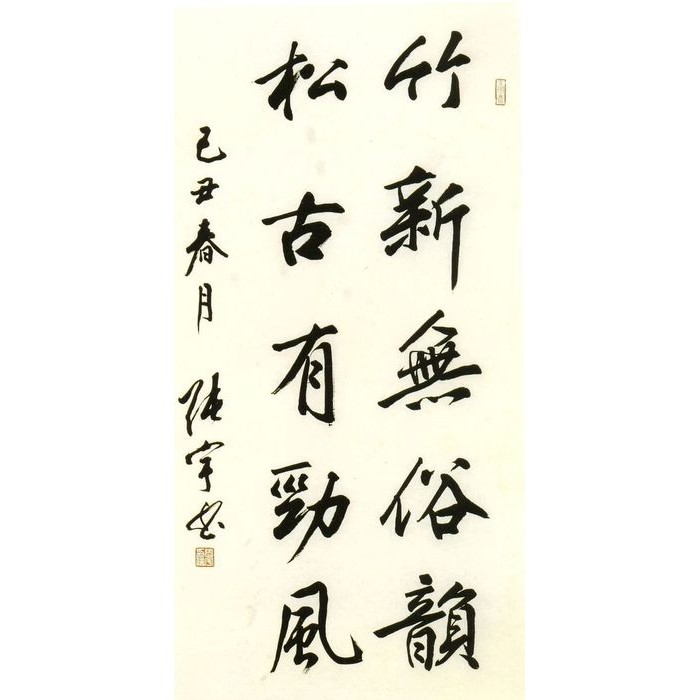 竹新無俗韻
松古有勁風
己丑春月 陸宇书